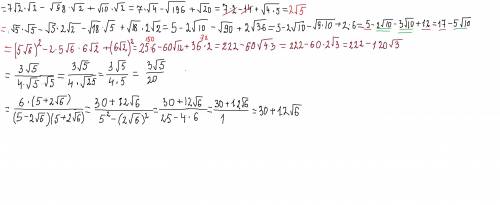 =7√2·√2 - √98·√2 + √10·√2 = 7·√4 - √196 + √20 = 7·2 - 14 + √4·5 = 2√5
= √5·√5 - √5·2√2 - √18·√5 + √18·2√2 = 5 - 2√10 - √90 + 2√36 = 5 - 2√10 - √9·10 + 2·6 = 5 - 2√10 - 3√10 + 12 = 17 - 5√10
= (5√6)² - 2·5√6·6√2 + (6√2)² = 25·6 - 60√12 + 36·2 = 222 - 60√4·3 = 222 - 60·2√3 = 222 - 120√3
= 3√5 / 4√5·√5 = 3√5 / 4·√25 = 3√5 / 4·5 = 3√5 / 20
= 6·(5+2√6) / (5-2√6)(5+2√6) = 30+12√6 / 5²-(2√6)² = 30+12√6 / 25-4·6 = 30+12√6 / 1 = 30+12√6